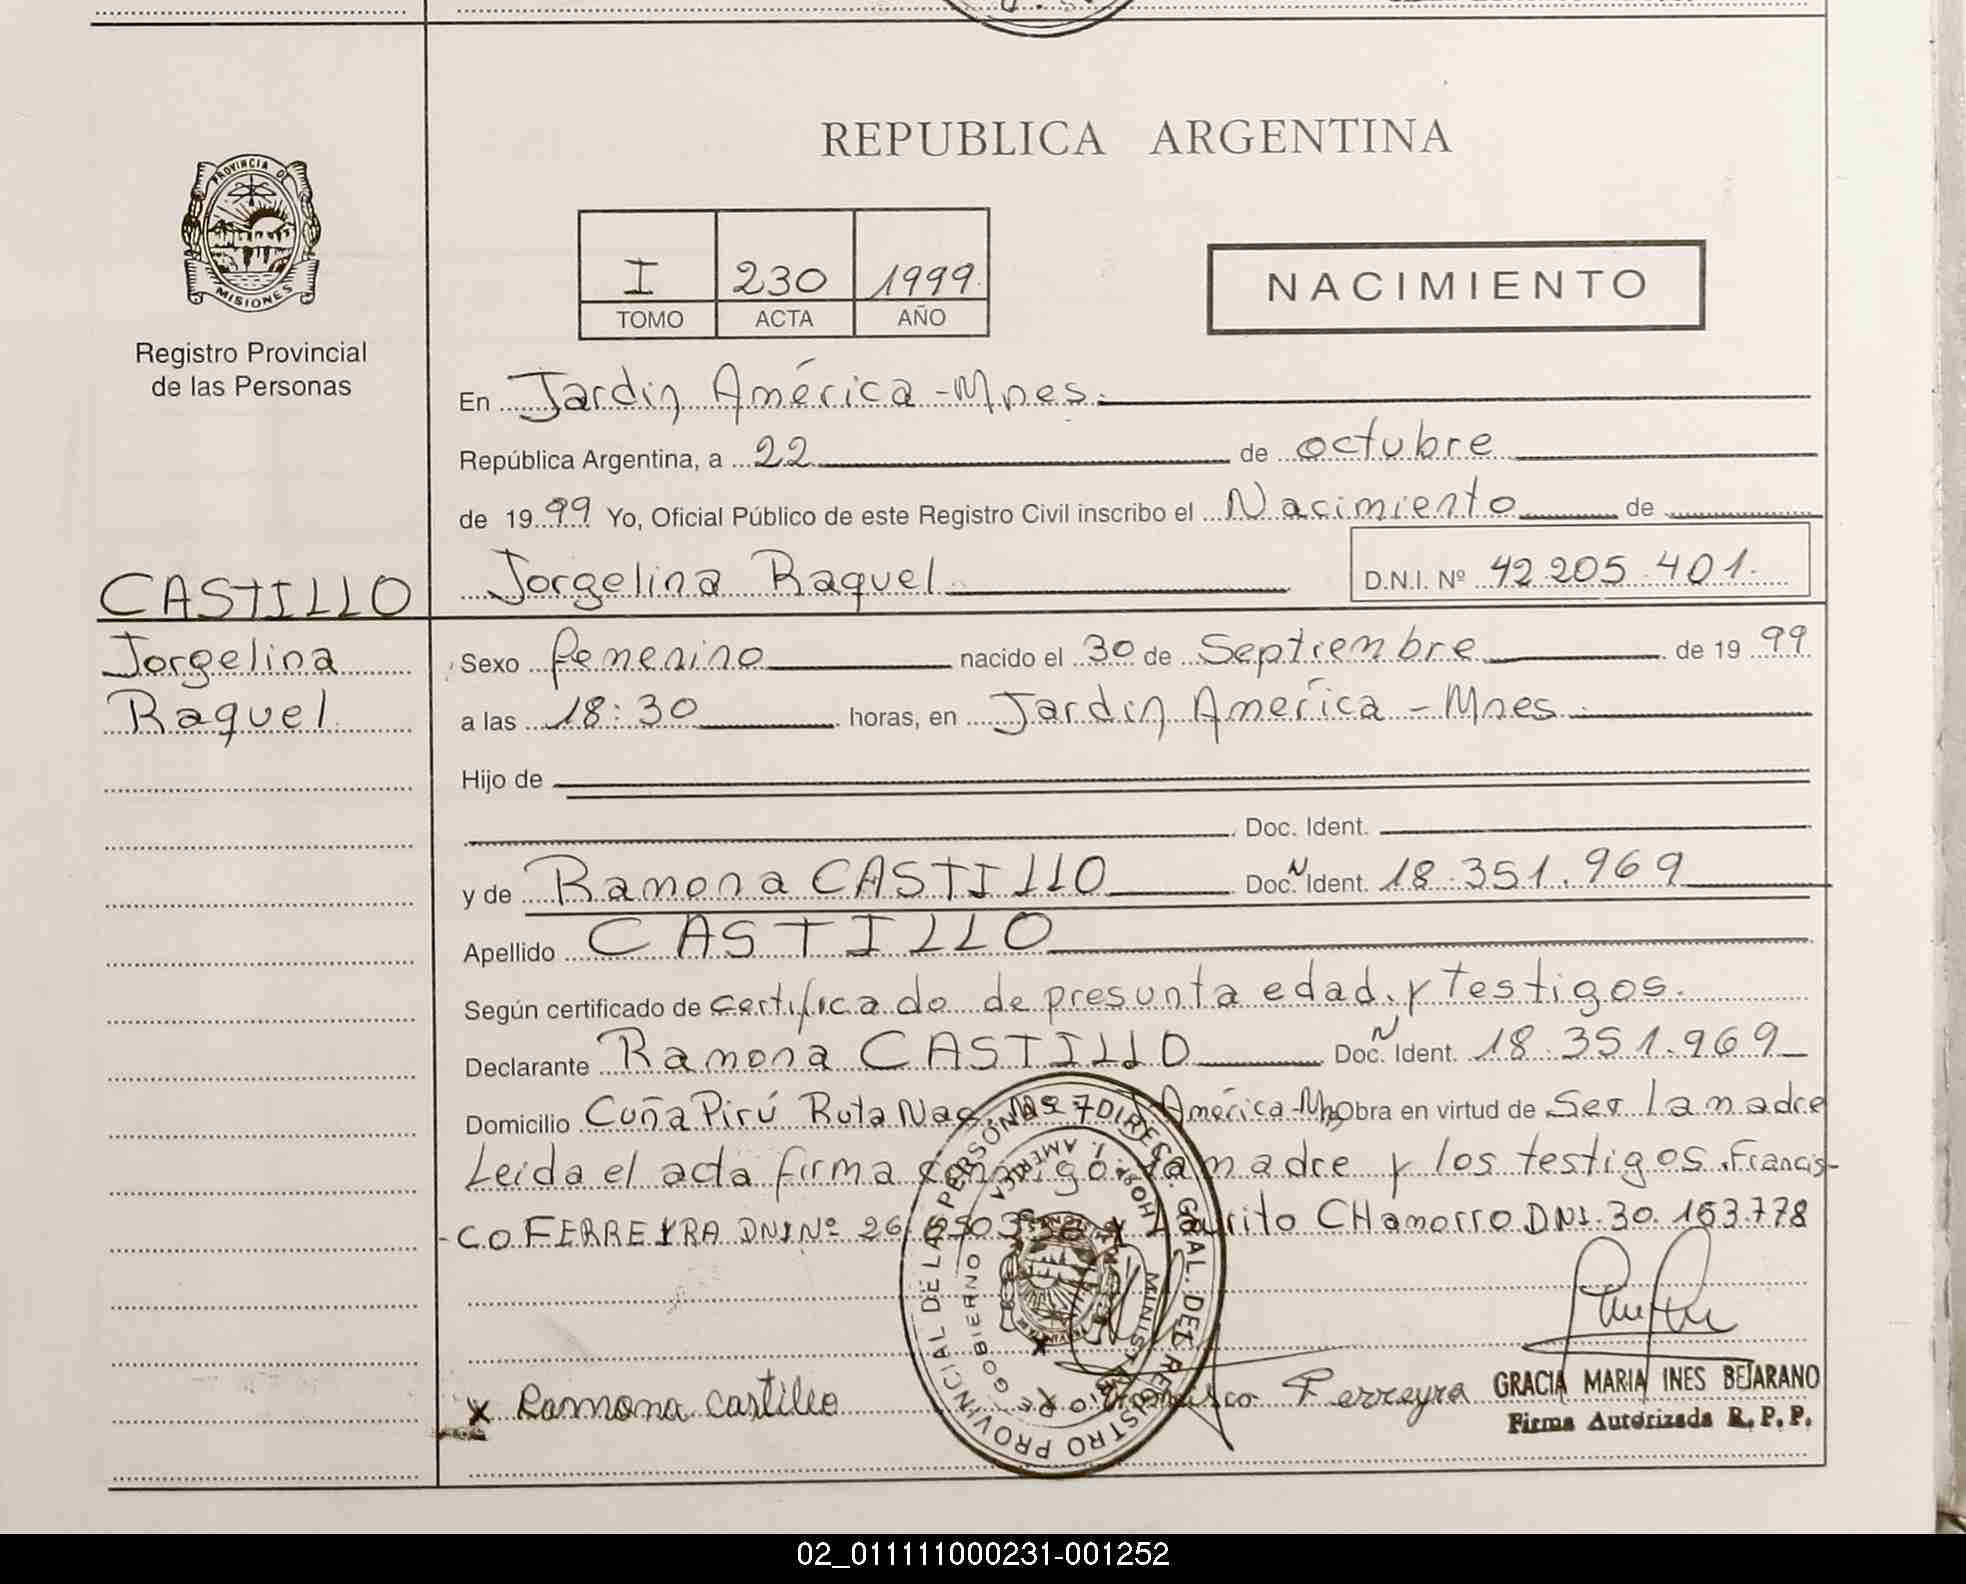 REPUBLICA ARGENTINA
PROVINCIA DE MISIONES
Registro Provincial
de las Personas
I 230 1999
TOMO ACTA AÑO
NACIMIENTO
En Jardin América - Mnes.
República Argentina, a 22 de octubre
de 1999 Yo, Oficial Público de este Registro Civil inscribo el Nacimiento de
Jorgelina Raquel D.N.I. Nº 42.205.401.
CASTILLO
Jorgelina
Raquel
Sexo femenino nacido el 30 de Septiembre de 1999
a las 18:30 horas, en Jardin America - Mnes.
Hijo de
Doc. Ident.
y de Ramona CASTILLO Doc. N Ident. 18.351.969
Apellido CASTILLO
Según certificado de certificado de presunta edad y testigos.
Declarante Ramona CASTILLO Doc. N Ident. 18.351.969
Domicilio Cuña Pirú Ruta Nac. Nº 7 América-Mn Obra en virtud de Ser la madre
Leida el acta firma conmigo la madre y los testigos. Francis-
-co FERREYRA DNI Nº 26. y Chamorro DNI. 30.163.778
DIREC. GRAL. DEL REGISTRO PROVINCIAL DE LAS PERSONAS
MINISTERIO DE GOBIERNO
AMERICA
x Ramona castillo
x Francisco Ferreyra
GRACIA MARIA INES BEJARANO
Firma Autorizada R.P.P.
02_011111000231-001252